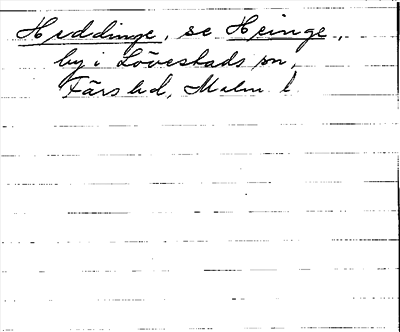 Heddinge, se Heinge,
by i Lövestads sn,
Färs hd, Malm l.